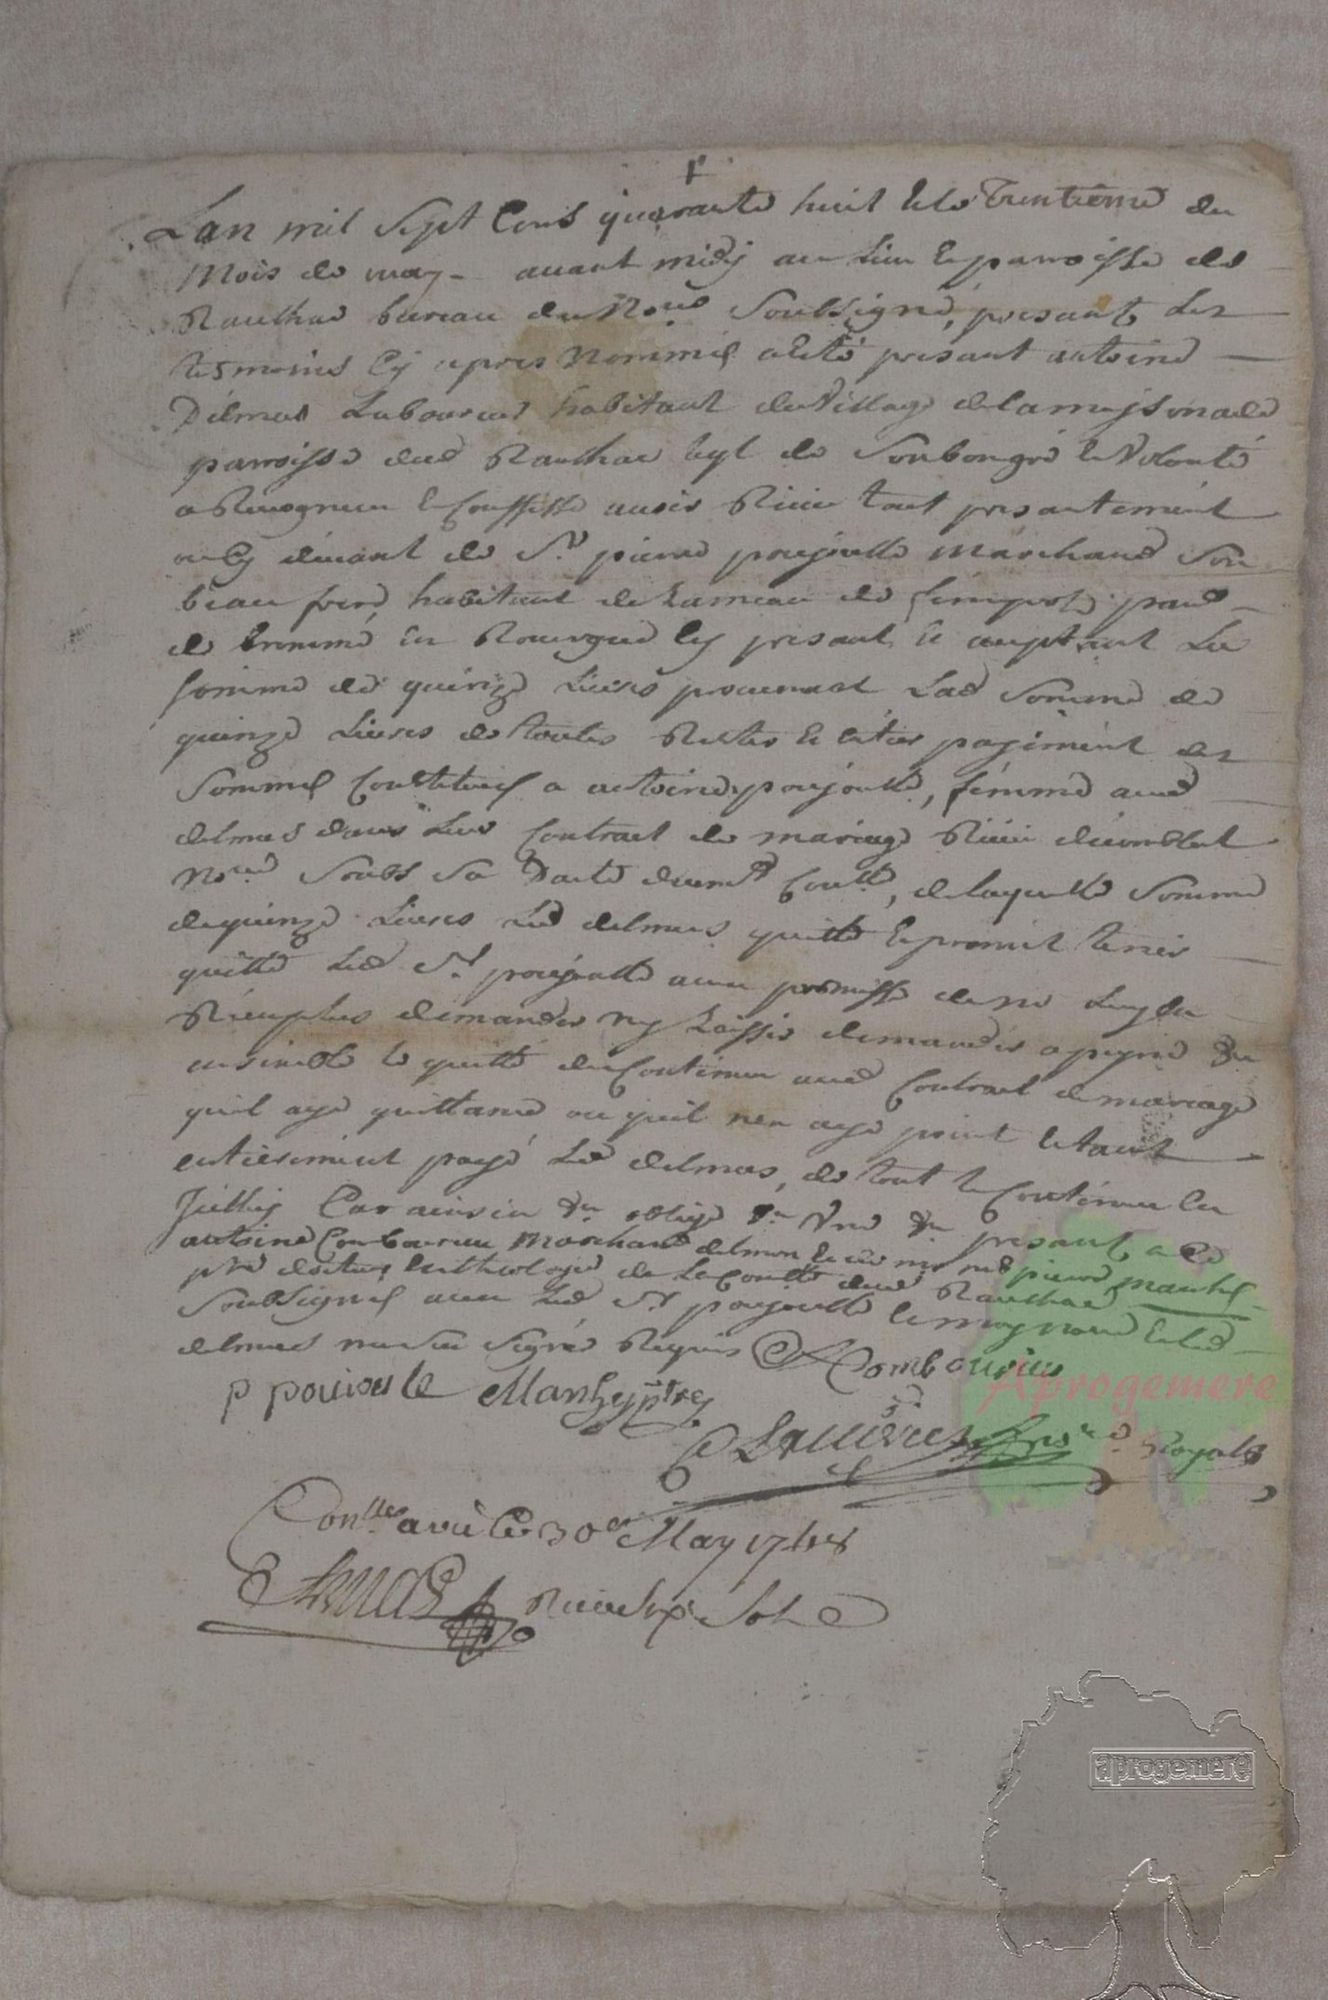 Lan mil sept Cens quarante huit et le Trentieme du
mois de may avant midy au Lieu et parroisse de
Raulhac bureau du Nore Soubsigné, presants les
tesmoins Cy apres Nommés a eté presant antoine
Delmas Laboureur habitant du Village de Lamaysonade
parroisse dud Raulhac leql de Son bon gré et Volonté
a Recognu et Confessé avoir Reçeu tout presantement
de Sr pierre poujoulle Marchand Son
beau frere habitant du hameau de parr
de en Rouergue Cy presant et aceptant La
Somme de quinze Livres provenant Lad Somme de
quinze Livres de toutes Restes et entier payement des
Sommes Constituées a antoine poujoulle, femme aud
delmas dans Leur Contract de mariage Reçeu
Nore Soubs Sa Datte duemt Conllé, de laquelle Somme
de quinze Livres Led delmas quitte et promet tenir
quitte Led Sr poujoulle avec promesse de ne Luy en
Rien plus demander ny Laisser demander a peyne &a
ensemble le quitte du Contenu aud Contract de mariage
quil aye quittance ou quil nen aye point etant
entierement payé Led delmas, de tout le Contenu en
Jcelluy Car ainsin &a oblige &a &a presants a ce
antoine Combourieu Marchand pierre manhes
ptre docteur en theologie de La Comté dud Raulhac
Soubsignés avec Led Sr poujoulle et moy nore et Led
delmas na Sceu Signer Requis Combourieu
p poujoule Manhes ptre
nore Royal
Conllé a vic Le 30e May 1748
Reçeu Six Sols
Aprogemere
aprogemere